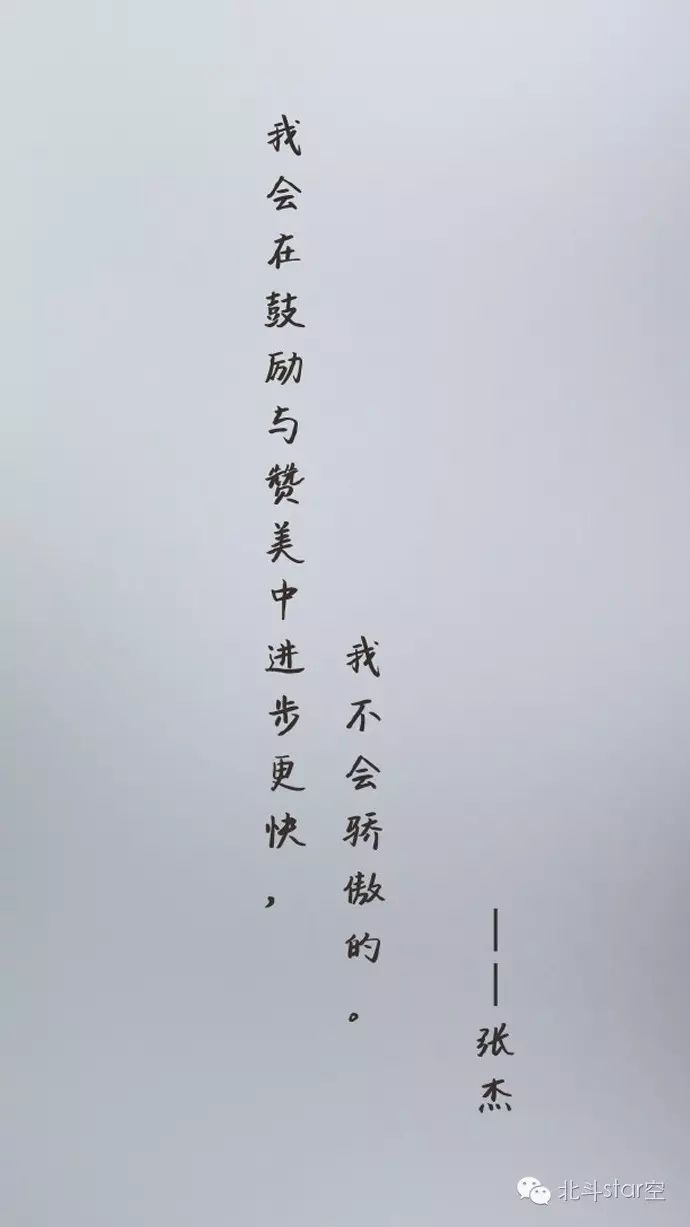 我会在鼓励与赞美中进步更快，
我不会骄傲的。
——张杰
北斗star空